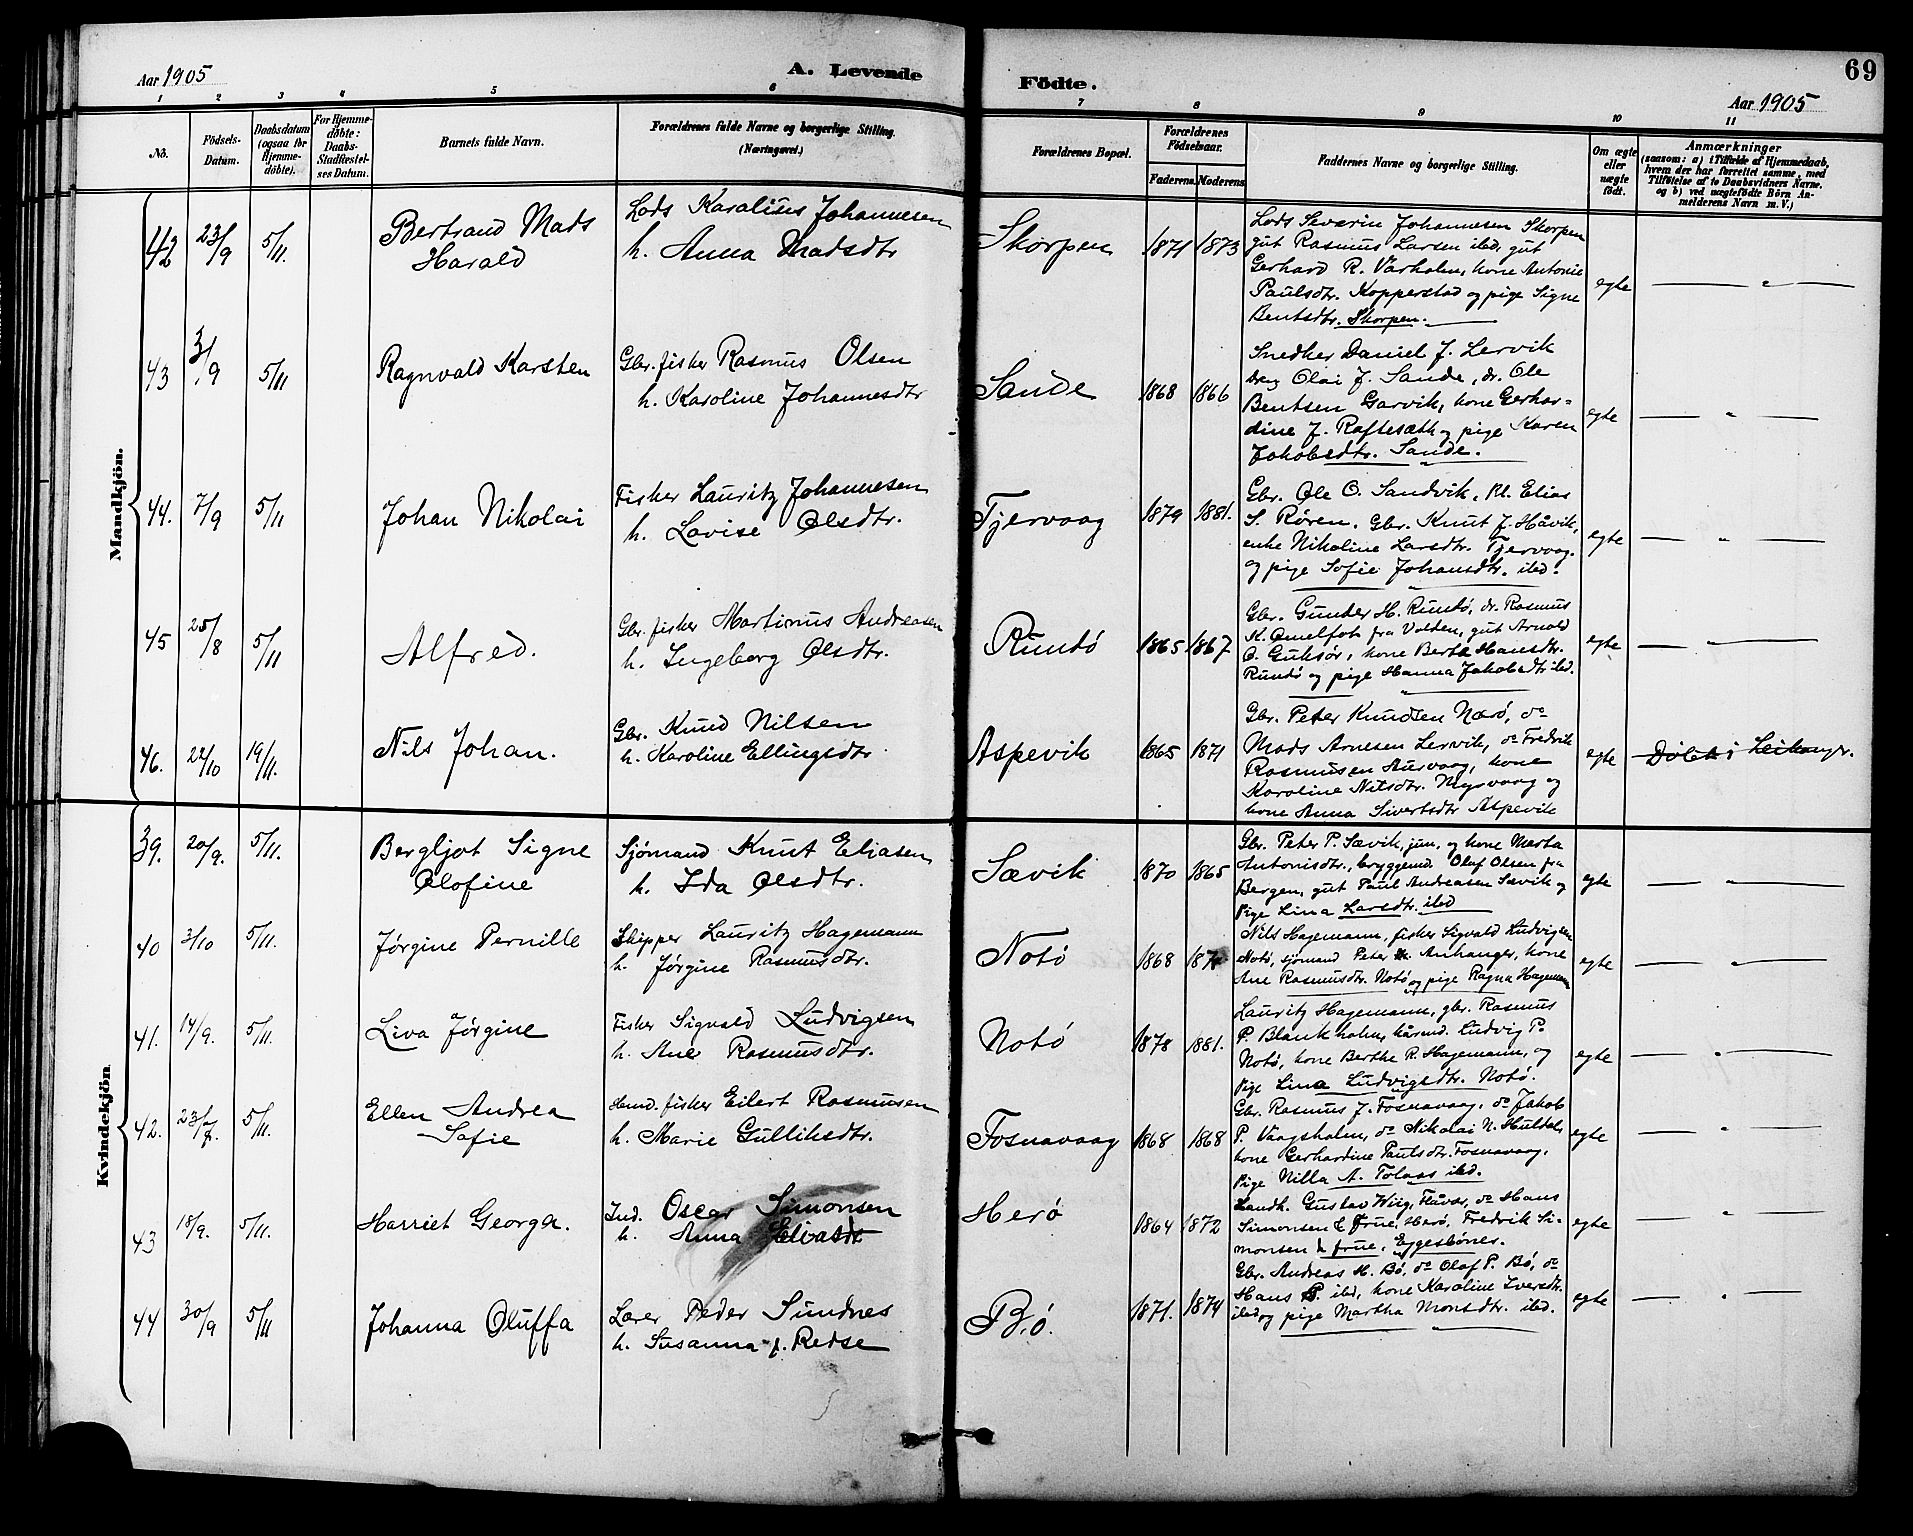 Aar 1905
A. Levende
Födte.
69
Aar 1905
1 2 3 4 5 6 7 8 9 10 11
No.
Födsels-
Datum.
Daabsdatum
(ogsaa for
Hjemme-
döbte).
For Hjemme-
döbte:
Daabs-
Stadfæstel-
ses Datum.
Barnets fulde Navn.
Forældrenes fulde Navne og borgerlige Stilling.
(Næringsvei.)
Forældrenes Bopæl.
Forældrenes
Födselsaar.
Faderens. Moderens.
Faddernes Navne og borgerlige Stilling.
Om ægte
eller
uægte
födt.
Anmærkninger
(saasom: a) i Tilfælde af Hjemmedaab,
hvem der har forrettet samme, med
Tilföielse af to Daabsvidners Navne,
og b) ved uægtefödte Börn An-
melderens Navn m. V.)
Mandkjön.
42 23/9 5/11. Bertrand Mads
Harald
Lods Karolius Johannesen
h. Anna Madsdtr
Skorpen 1871 1873
Lods Severin Johannesen Skorpen
gut Rasmus Larsen ibd, gut
Gerhard R. Varholm, kone Antonie
Paulsdtr. Kopperstad og pige Signe
Bentsdtr. Skorpen.
egte — " —
43 3/9 5/11 Ragnvald Karsten
Gbr. fisker Rasmus Olsen
h. Karoline Johannesdtr
Sande 1868 1866
Snedker Daniel J. Lervik
Olai J. Sande, dr. Ole
Bentsen Garvik, kone Gerhar-
dine J. Raftesæth og pige Karen
Jakobsdtr. Sande.
egte — " —
44. 7/9 5/11 Johan Nikolai
Fisker Lauritz Johannesen
h. Lovise Olsdtr.
Tjervaag 1879 1881.
Gbr. Ole O. Sandvik, Kl. Elias
S. Røren, Gbr. Knut J. Håvik,
enke Nikoline Larsdtr. Tjervaag.
og pige Sofie Johansdtr. ibd.
egte — " —
45 25/8 5/11 Alfred.
Gbr. fisker Martinus Andreasen
h. Ingeborg Olsdtr.
Rundö 1865 1867
Gbr. Gunder H. Rundö, dr. Rasmus
K. fra Volden, gut Arnold
O. Guksør, kone Berthe Hansdtr.
Rundø og pige Hanna Jakobsdtr ibd.
egte — " —
46. 22/10 19/11. Nils Johan.
Gbr. Knud Nilsen
h. Karoline Ellingsdtr
Aspevik 1865 1871
Gbr. Peter Knudsen Nærö, do
Mads Arnesen Lervik, do Fredrik
Rasmusen Aurvaag, kone
Karoline Nilsdtr. Mysvaag og
kone Anna Sivertsdtr Aspevik
egte Döbt i Leikanger.
Kvindekjön.
39. 20/9. 5/11. Bergljot Signe
Olofine
Sjömand Knut Eliasen
h. Ida Olsdtr.
Sævik 1870 1865
Gbr. Peter P. Sævik, jun, og kone Marta
Antonisdtr., bryggemd. Olaf Olsen fra
Bergen, gut Paul Andreasen Sævik og
Pige Lina Larsdtr. ibd
egte — " —
40 3/10 5/11. Jørgine Pernille
Skipper Lauritz Hagemann
h. Jørgine Rasmusdtr.
Notö 1868
Nils Hagemann, fisker Sigvald Ludvigsen
Notö, sjömand Peter Anhanger, kone
Ane Rasmusdtr. Notö og pige Ragna Hagemann
egte — " —
41. 14/9. 5/11. Liva Jørgine
Fisker Sigvald Ludvigsen
h. Ane Rasmusdtr.
Notö 1878 1881.
Lauritz Hagemann, gbr. Rasmus
P. Blankholm, kårmd. Ludvig P.
Notö, kone Berthe R. Hagemann, og
pige Lina Ludvigsdtr. Notö.
egte — " —
42. 23/7. 5/11. Ellen Andrea
Sofie
Husmd. fisker Eilert Rasmusen
h. Marie Gulliksdtr.
Fosnavaag 1868 1868
Gbr. Rasmus J. Fosnavaag, do Jakob
P. Vaagsholm, do Nikolai N. Huldal,
kone Gerhardine Paulsdtr. Fosnavaag,
pige Nilla A. Tolaas ibd.
egte — " —
43 18/9. 5/11. Harriet Georga.
Ind. Oscar Simonsen
h. Anna
Herö 1864 1872
Landh. Gustav Wiig, Flåvær, do Hans
Simonsen & frue, Herö, Fredrik Si-
monsen & frue, Eggesbönes.
egte — " —
44 30/9 5/11 Johanna Oluffa
Lærer Peder Sundnes
h. Susanna f. Redse
Bö. 1871. 1874
Gbr. Andreas H. Bö, do Olaf P. Bö, do
Hans P ibd, kone Karoline Iversdtr.
ibd og pige Martha Monsdtr. ibd.
egte — " —